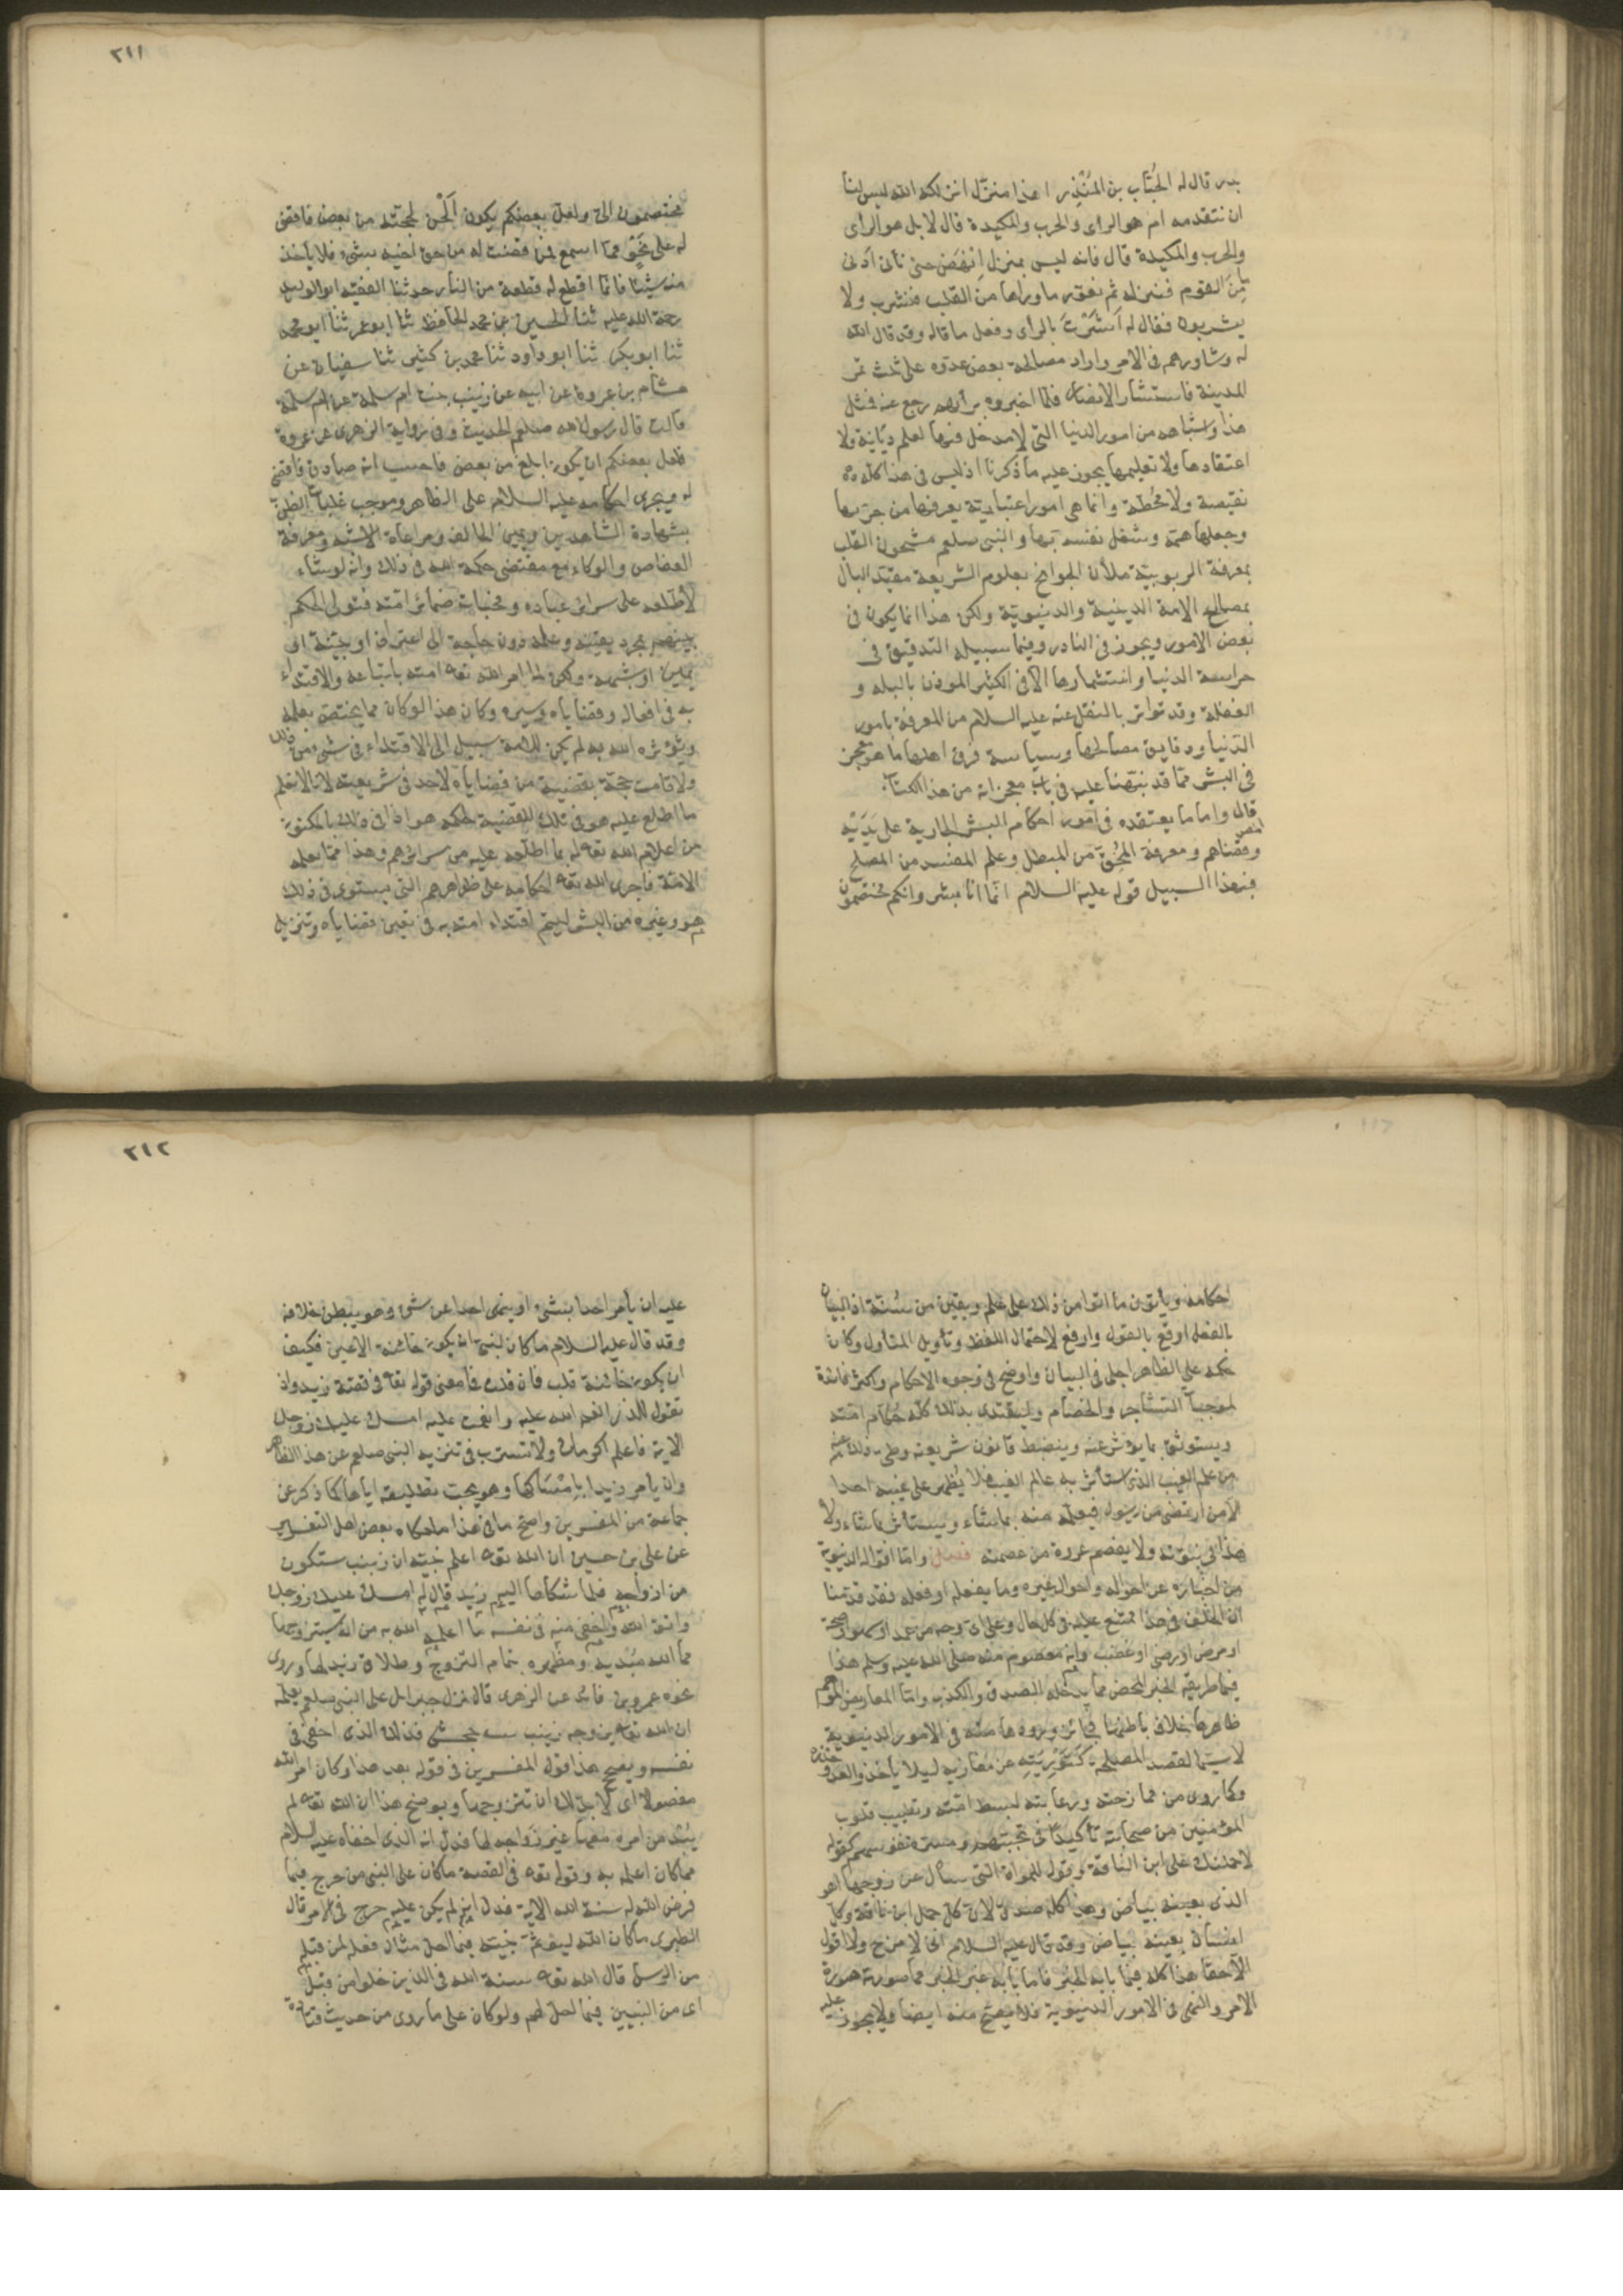 بدر قال له الحُبَاب بن المُنْذِر اهذا منزل انزلكه الله ليس لنا
ان نتقدمه ام هو الراى والحرب والمكيدة قال لا بل هو الراى
والحرب والمكيدة قال فانه ليس بمنزل اِنْهَض حتى نأتى ادنى
مَاءٍ مِنَ القوم فننزله ثم نعوّر ما وراءها من القلب فنشرب ولا
يشربون فقال له اَشَرْتَ بالرأى وفعل ما قاله وقد قال الله
له وشاورهم فى الامر واراد مصالحة بعض عدوه على ثلث تمر
المدينة فاستشار الانصار فلما اخبروه برأيهم رجع عنه فمثل
هذا واشباهه من امور الدنيا التى لا مدخل فيها لعلم ديانة ولا
اعتقادها ولا تعليمها يجوز عليه ما ذكرنا اذ ليس فى هذا كله
نقيصة ولا محُطة وانما هى امور اعتيادية يعرفها من جربها
وجعلها همه وشغل نفسه بها والنبى صلعم مشحون القلب
بمعرفة الربوبية ملأن الجوانح بعلوم الشريعة مقيّد البال
بمصالح الامة الدينية والدنيوية ولكن هذا انما يكون فى
بعض الامور ويجوز فى النادر وفيما سبيله التدقيق فى
حراسة الدنيا واستثمارها لا فى الكثير المؤذن بالبله و
الغفلة وقد تواتر بالنقل عنه عليه السلام من المعرفة بامور
الدنيا ودقايق مصالحها وسياسة فرق اهلها ما هو معجز
فى البشر ممّا قد نبّهنا عليه فى باب معجزاته من هذا الكتاب
قال واما ما يعتقده فى امور احكام البشر الجارية على يَدَيْه
وقضاياهم ومعرفة المُحِقّ من المبطل وعلم المفسد من المصلح
فبهذا السبيل قوله عليه السلام انما انا بشر وانكم تختصمون
٢١١
تختصمون الىّ ولعل بعضكم يكون اَلْحَن بحجته من بعض فاقضى
له على نحوٍ ممّا اسمع فمن قضيت له من حق اخيه بشىء فلا يأخذ
منه شيئا فانما اقطع له قطعة من النار حدثنا الفقيه ابو الوليد
رحمة الله عليه ثنا الحسين بن محمد الحافظ ثنا ابو عمر ثنا ابو محمد
ثنا ابو بكر ثنا ابو داود ثنا محمد بن كثير ثنا سفيان عن
هشام بن عروة عن ابيه عن زينب بنت ام سلمة عن ام سلمة
قالت قال رسول الله صلعم الحديث وفى رواية الزهرى عن عروة
فلعل بعضكم ان يكون ابلغ من بعض فاحسب انه صادق فاقضى
له ويجرى احكامه عليه السلام على الظاهر وموجب غلبات الظن
بشهادة الشاهدين ويمين الحالف ومراعاة الاشبه ومعرفة
العفاص والوكاء مع مقتضى حكمة الله فى ذلك وانه لو شاء
لأطلعه على سرائر عباده ومخبيات ضمائر امته فتولى الحكم
بينهم بمجرد يقينه وعلمه دون حاجة الى اعتراف او بينة او
يمين او شبهة ولكن لما امر الله تعه امته باتباعه والاقتداء
به فى افعاله وقضاياه وسيره وكان هذا لو كان مما يختص بعلمه
ويؤثره الله به لم يكن للامة سبيل الى الاقتداء فى شىء من ذلك
ولا قامت حجة بقضية من قضاياه لاحد فى شريعته لانا لا نعلم
ما اطلع عليه هو فى تلك القضية لحكمه هو اذا فى ذلك بالمكنون
من اعلام الله تعه له بما اطلعه عليه من سرائرهم وهذا مما يعلمه
الامة فاجرى الله تعه احكامه على ظواهرهم التى يستوى فى ذلك
هو وغيره من البشر ليتم اقتداء امته به فى تعيين قضاياه وتنزيل
احكامه ويأتون ما اتوا من ذلك على علم ويقين من سُنّته اذ البيان
بالفعل اوقع بالقول وارفع لاحتمال اللفظ وتأويل المتأول وكان
حكمه على الظاهر اجلى فى البيان واوضح فى وجوه الاحكام واكثر فائدة
لموجبات التشاجر والخصام وليقتدى بذلك كله حكام امته
ويستوثق بما يؤثر عنه وينضبط قانون شريعته وطى ذلك عنه
من علم الغيب الذى استأثر به عالم الغيب فلا يُظهر على غيبه احدا
الا من ارتضى من رسول فيعلمه منه بما شاء ويستأثر بما شاء ولا
هذا فى نبوّته ولا يفصم عروة من عصمته فصل وامّا اقواله الدنيوية
من اخباره عن احواله واحوال غيره وما يفعله او فعله فقد قدمنا
ان الخلف فى هذا ممتنع عليه فى كل حال وعلى اى وجه من عمد او سهو او صحة
او مرض او رضى او غضب وانه معصوم منه صلى الله عليه وسلم هذا
فيما طريقه الخبر المحض مما يدخله الصدق والكذب وامّا المعاريض الموهم
ظاهرها خلاف باطنها فجائز ورودها منه فى الامور الدنيوية
لا سيّما لقصد المصلحة كَتَوْرِيَتِهِ عن مغازيه ليلا يأخذ العدو حذره
وكما روى من ممازحته ودعابته لبسط امته وتطييب قلوب
المؤمنين من صحابته تأكيدا فى تحببهم ومسرة نفوسهم كقوله
لاحملنك على ابن الناقة وقوله للمراة التى سأل عن زوجها اهو
الذى بعينه بياض وهذا كله صدق لان كل جمل ابن ناقة وكل
انسان بعينه بياض وقد قال عليه السلام انى لامزح ولا اقول
الا حقا هذا كله فيما بابه الخبر فاما بابه غير الخبر مما صورته صورة
الامر والنهى فى الامور الدنيوية فلا يصح منه ايضا ولا يجوز عليه
٢١٢
عليه ان يأمر احدا بشىء او ينهى احدا عن شىء وهو يبطن خلافه
وقد قال عليه السلام ما كان لنبى ان يكون خائنة الاعين فكيف
ان يكون خائنة قلب فان قلت فما معنى قوله تعه فى قصة زيد واذ
تقول للذى انعم الله عليه وانعمت عليه امسك عليك زوجك
الاية فاعلم اكرمك ولا تسترب فى تنزيه النبى صلعم عن هذا الظاهر
وان يأمر زيدا بامْسَاكها وهو يحب تطليقه اياها كما ذكر عن
جماعة من المفسرين واصح ما فى هذا ما حكاه بعض اهل التفسير
عن على بن حسين ان الله تعه اعلم نبيه ان زينب ستكون
من ازواجه فلما شكاها اليه زيد قال له امسك عليك زوجك
واتق الله واخفى منه فى نفسه ما اعلمه الله به من انه سيتزوجها
مما الله مُبْديه ومظهره بتمام التزوج وطلاق زيد لها وروى
نحوه عمرو بن فائد عن الزهرى قال نزل جبرايل على النبى صلعم يعلمه
ان الله تعه يزوجه زينب بنت جحش فذلك الذى اخفى فى
نفسه ويصحح هذا قوله المفسرين فى قوله بعد هذا وكان امر الله
مفعولا اى لا بد لك ان تتزوجها ويوضح هذا ان الله تعه لم
يبْد من امره معها غير زواجه لها فدل انه الذى اخفاه عليه السلام
مما كان اعلمه به وقوله تعه فى القصة ما كان على النبى من حرج فيما
فرض الله له سنة الله الاية فدل انه لم يكن عليه حرج فى الامر قال
الطبرى ما كان الله ليؤثم نبيه فيما احل مثال فعله لمن قبله
من الرسل قال الله تعه سنة الله فى الذين خلوا من قبل
اى من النبيين فيما احل لهم ولو كان على ما روى من حديث قتادة